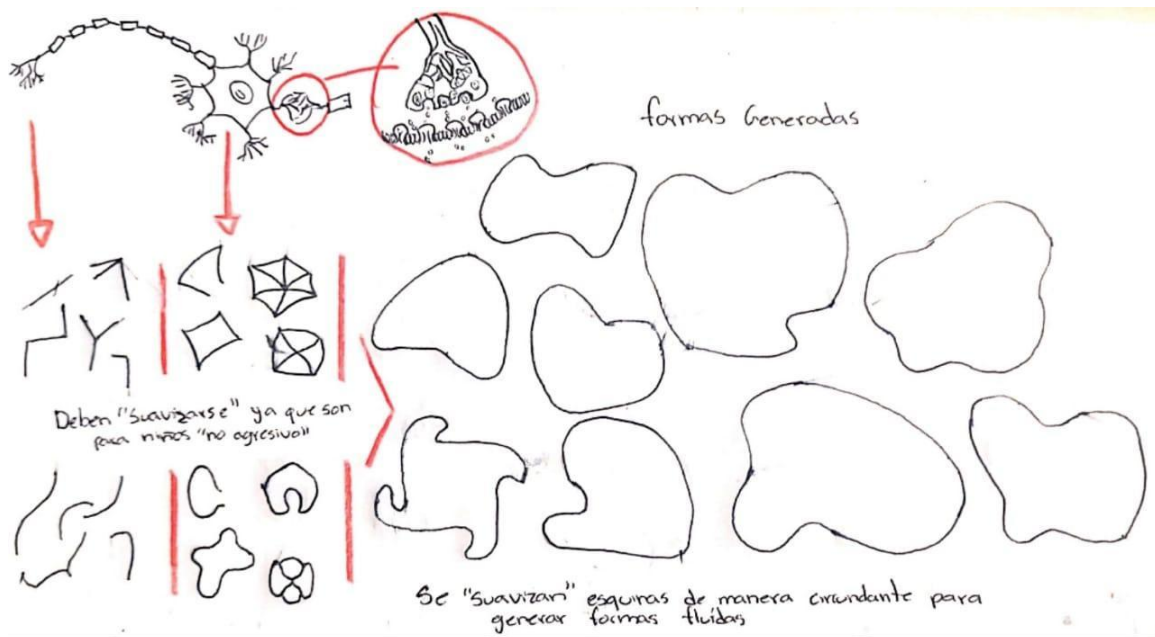 formas Generadas
Deben "suavizarse" ya que son
para niños "no agresivo"
Se "suavizan" esquinas de manera circundante para
generar formas fluídas